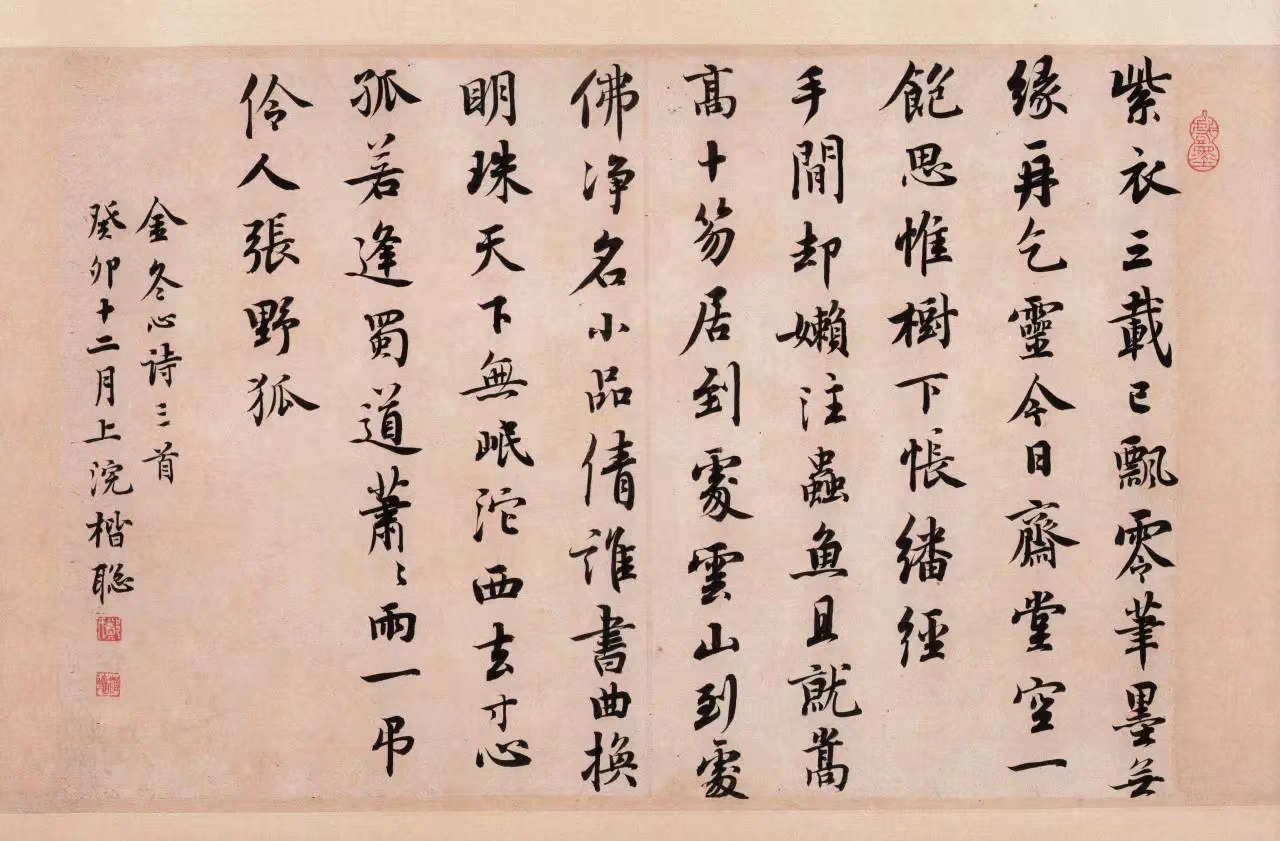 紫衣三載已飄零筆墨無
緣再乞靈今日齋堂空一
飽思惟樹下悵繙經
手閒却嬾注蟲魚且就嵩
高十笏居到處雲山到處
佛净名小品倩誰書曲換
明珠天下無岷沱西去寸心
孤若逢蜀道蕭〻雨一弔
伶人張野狐
金冬心诗三首
癸卯十二月上浣楷聡